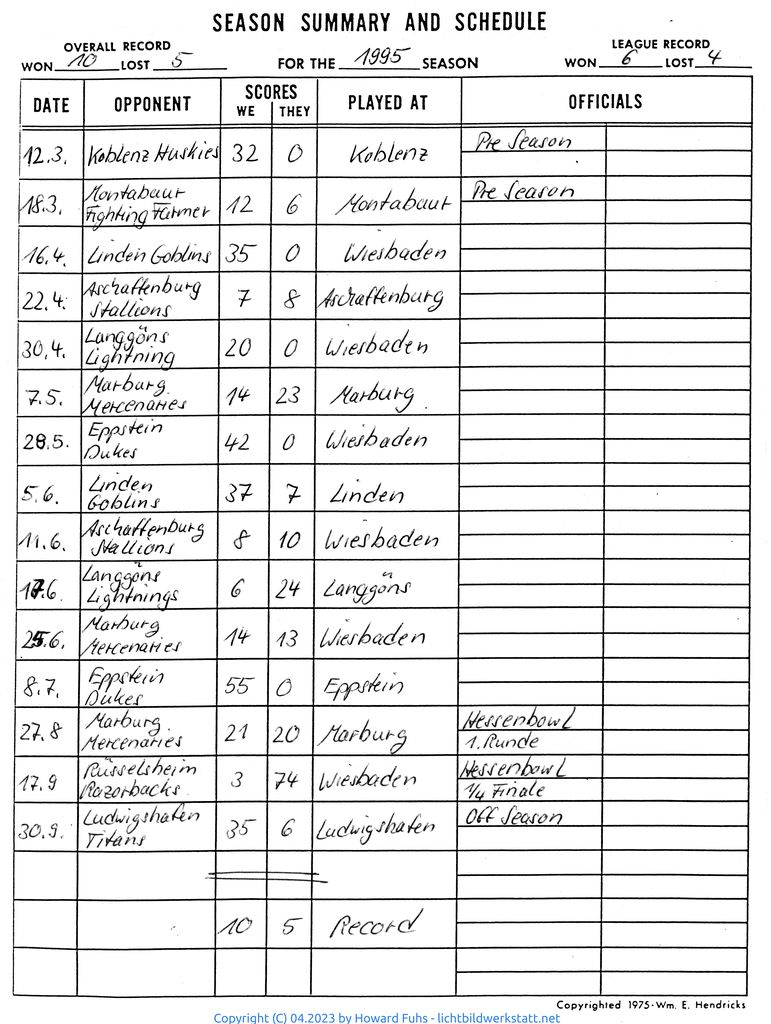 SEASON SUMMARY AND SCHEDULE
OVERALL RECORD
WON 10 LOST 5
FOR THE 1995 SEASON
LEAGUE RECORD
WON 6 LOST 4
DATE OPPONENT SCORES WE THEY PLAYED AT OFFICIALS
12.3. Koblenz Huskies 32 0 Koblenz Pre Season
18.3. Montabaur Fighting Farmer 12 6 Montabaur Pre Season
16.4. Linden Goblins 35 0 Wiesbaden
22.4. Aschaffenburg Stallions 7 8 Aschaffenburg
30.4. Langgöns Lightning 20 0 Wiesbaden
7.5. Marburg Mercenaries 14 23 Marburg
28.5. Eppstein Dukes 42 0 Wiesbaden
5.6. Linden Goblins 37 7 Linden
11.6. Aschaffenburg Stallions 8 10 Wiesbaden
17.6. Langgöns Lightnings 6 24 Langgöns
25.6. Marburg Mercenaries 14 13 Wiesbaden
8.7. Eppstein Dukes 55 0 Eppstein
27.8 Marburg Mercenaries 21 20 Marburg Hessenbowl 1. Runde
17.9 Rüsselsheim Razorbacks 3 74 Wiesbaden Hessenbowl 1/4 Finale
30.9. Ludwigshafen Titans 35 6 Ludwigshafen Off Season
10 5 Record
Copyrighted 1975-Wm. E. Hendricks
Copyright (C) 04.2023 by Howard Fuhs - lichtbildwerkstatt.net